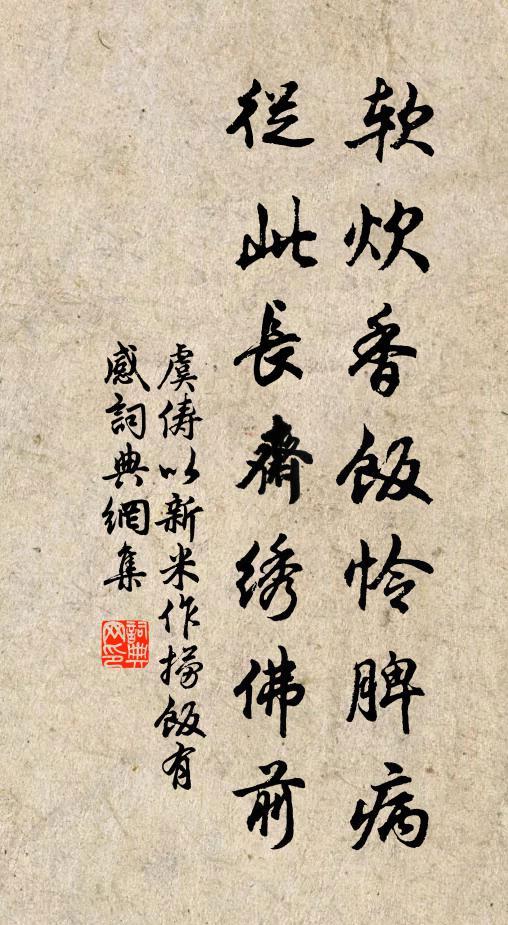 软炊香飯怜脾病
從此長齋绣佛前
虞儔以新米作捞飯有
感詞典網集
詞典
网印